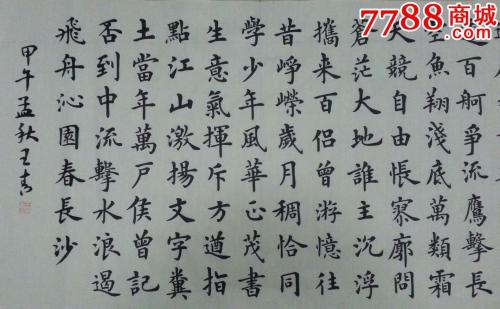 7788商城
百舸爭流鷹擊長
空魚翔淺底萬類霜
天競自由悵寥廓問
蒼茫大地誰主沉浮
攜來百侶曾游憶往
昔崢嶸歲月稠恰同
學少年風華正茂書
生意氣揮斥方遒指
點江山激揚文字糞
土當年萬戶侯曾記
否到中流擊水浪遏
飛舟沁園春長沙
甲午孟秋王